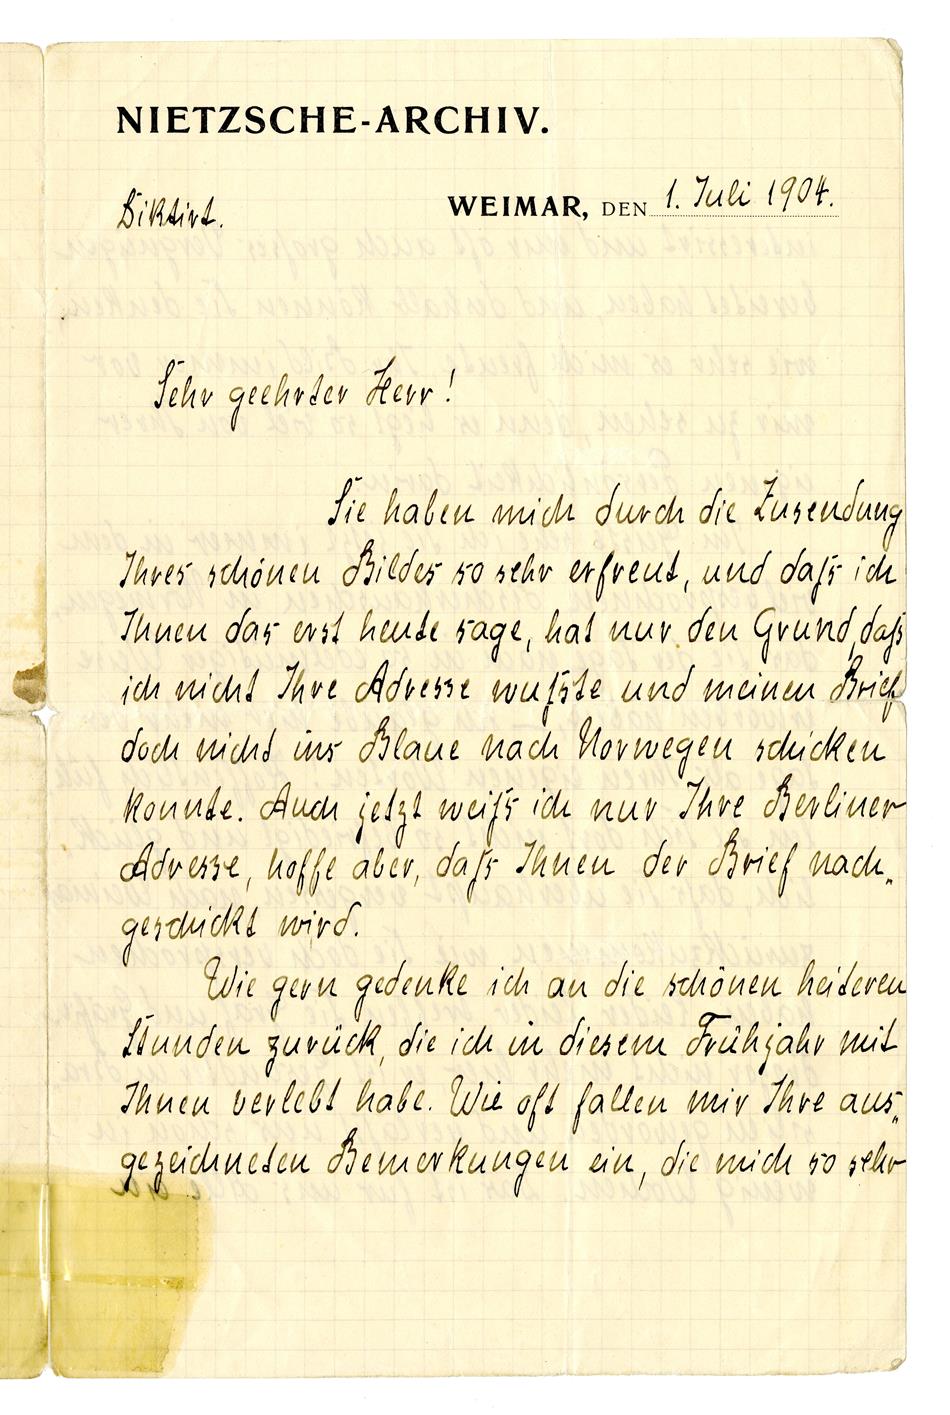 NIETZSCHE-ARCHIV.
Diktirt.
WEIMAR, DEN 1. Juli 1904.
Sehr geehrter Herr!
Sie haben mich durch die Zusendung
Ihres schönen Bildes so sehr erfreut, und daß ich
Ihnen das erst heute sage, hat nur den Grund, daß
ich nicht Ihre Adresse wußte und meinen Brief
doch nicht ins Blaue nach Norwegen schicken
konnte. Auch jetzt weiß ich nur Ihre Berliner
Adresse, hoffe aber, daß Ihnen der Brief nach„
geschickt wird.
Wie gern gedenke ich an die schönen heiteren
Stunden zurück, die ich in diesem Frühjahr mit
Ihnen verlebt habe. Wie oft fallen mir Ihre aus„
gezeichneten Bemerkungen ein, die mich so sehr